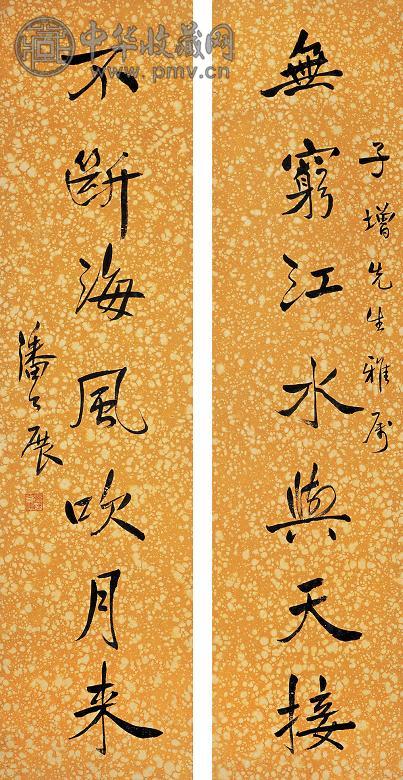 無窮江水與天接
子增先生雅属
不斷海風吹月来
潘公展
中华收藏网
www.pmv.cn